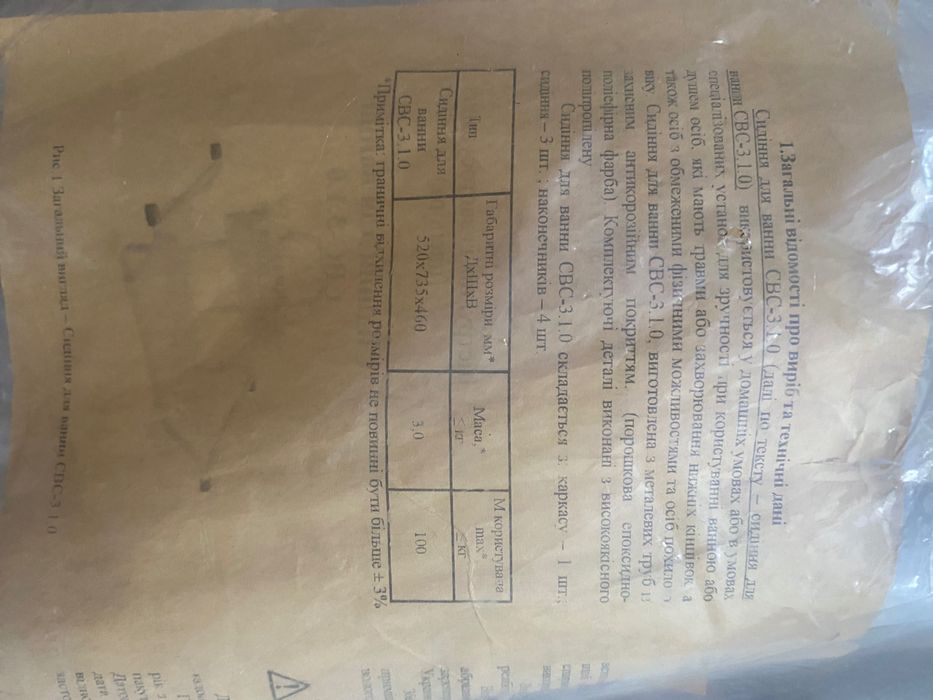 1.Загальні відомості про виріб та технічні дані
Сидіння для ванни СВС-3.1.0 (далі по тексту – сидіння для
ванни СВС-3.1.0) використовується у домашніх умовах або в умовах
спеціалізованих установ для зручності при користуванні ванною або
душем осіб, які мають травми або захворювання нижніх кінцівок, а
також осіб з обмеженими фізичними можливостями та осіб похилого
віку. Сидіння для ванни СВС-3.1.0, виготовлена з металевих труб із
захисним антикорозійним покриттям. (порошкова епоксидно-
поліефірна фарба). Комплектуючі деталі виконані з високоякісного
поліпропілену
Сидіння для ванни СВС-3.1.0 складається з: каркасу – 1 шт.;
сидіння – 3 шт. ; наконечників – 4 шт.
Тип
Габаритні розміри, мм*
ДхШхВ
Маса,*
≤ кг
М користувача
max*
≤ кг
Сидіння для
ванни
СВС-3.1.0
520х735х460
3,0
100
*Примітка: граничні відхилення розмірів не повинні бути більше ± 3%
Рис.1 Загальний вигляд – Сидіння для ванни СВС-3.1.0